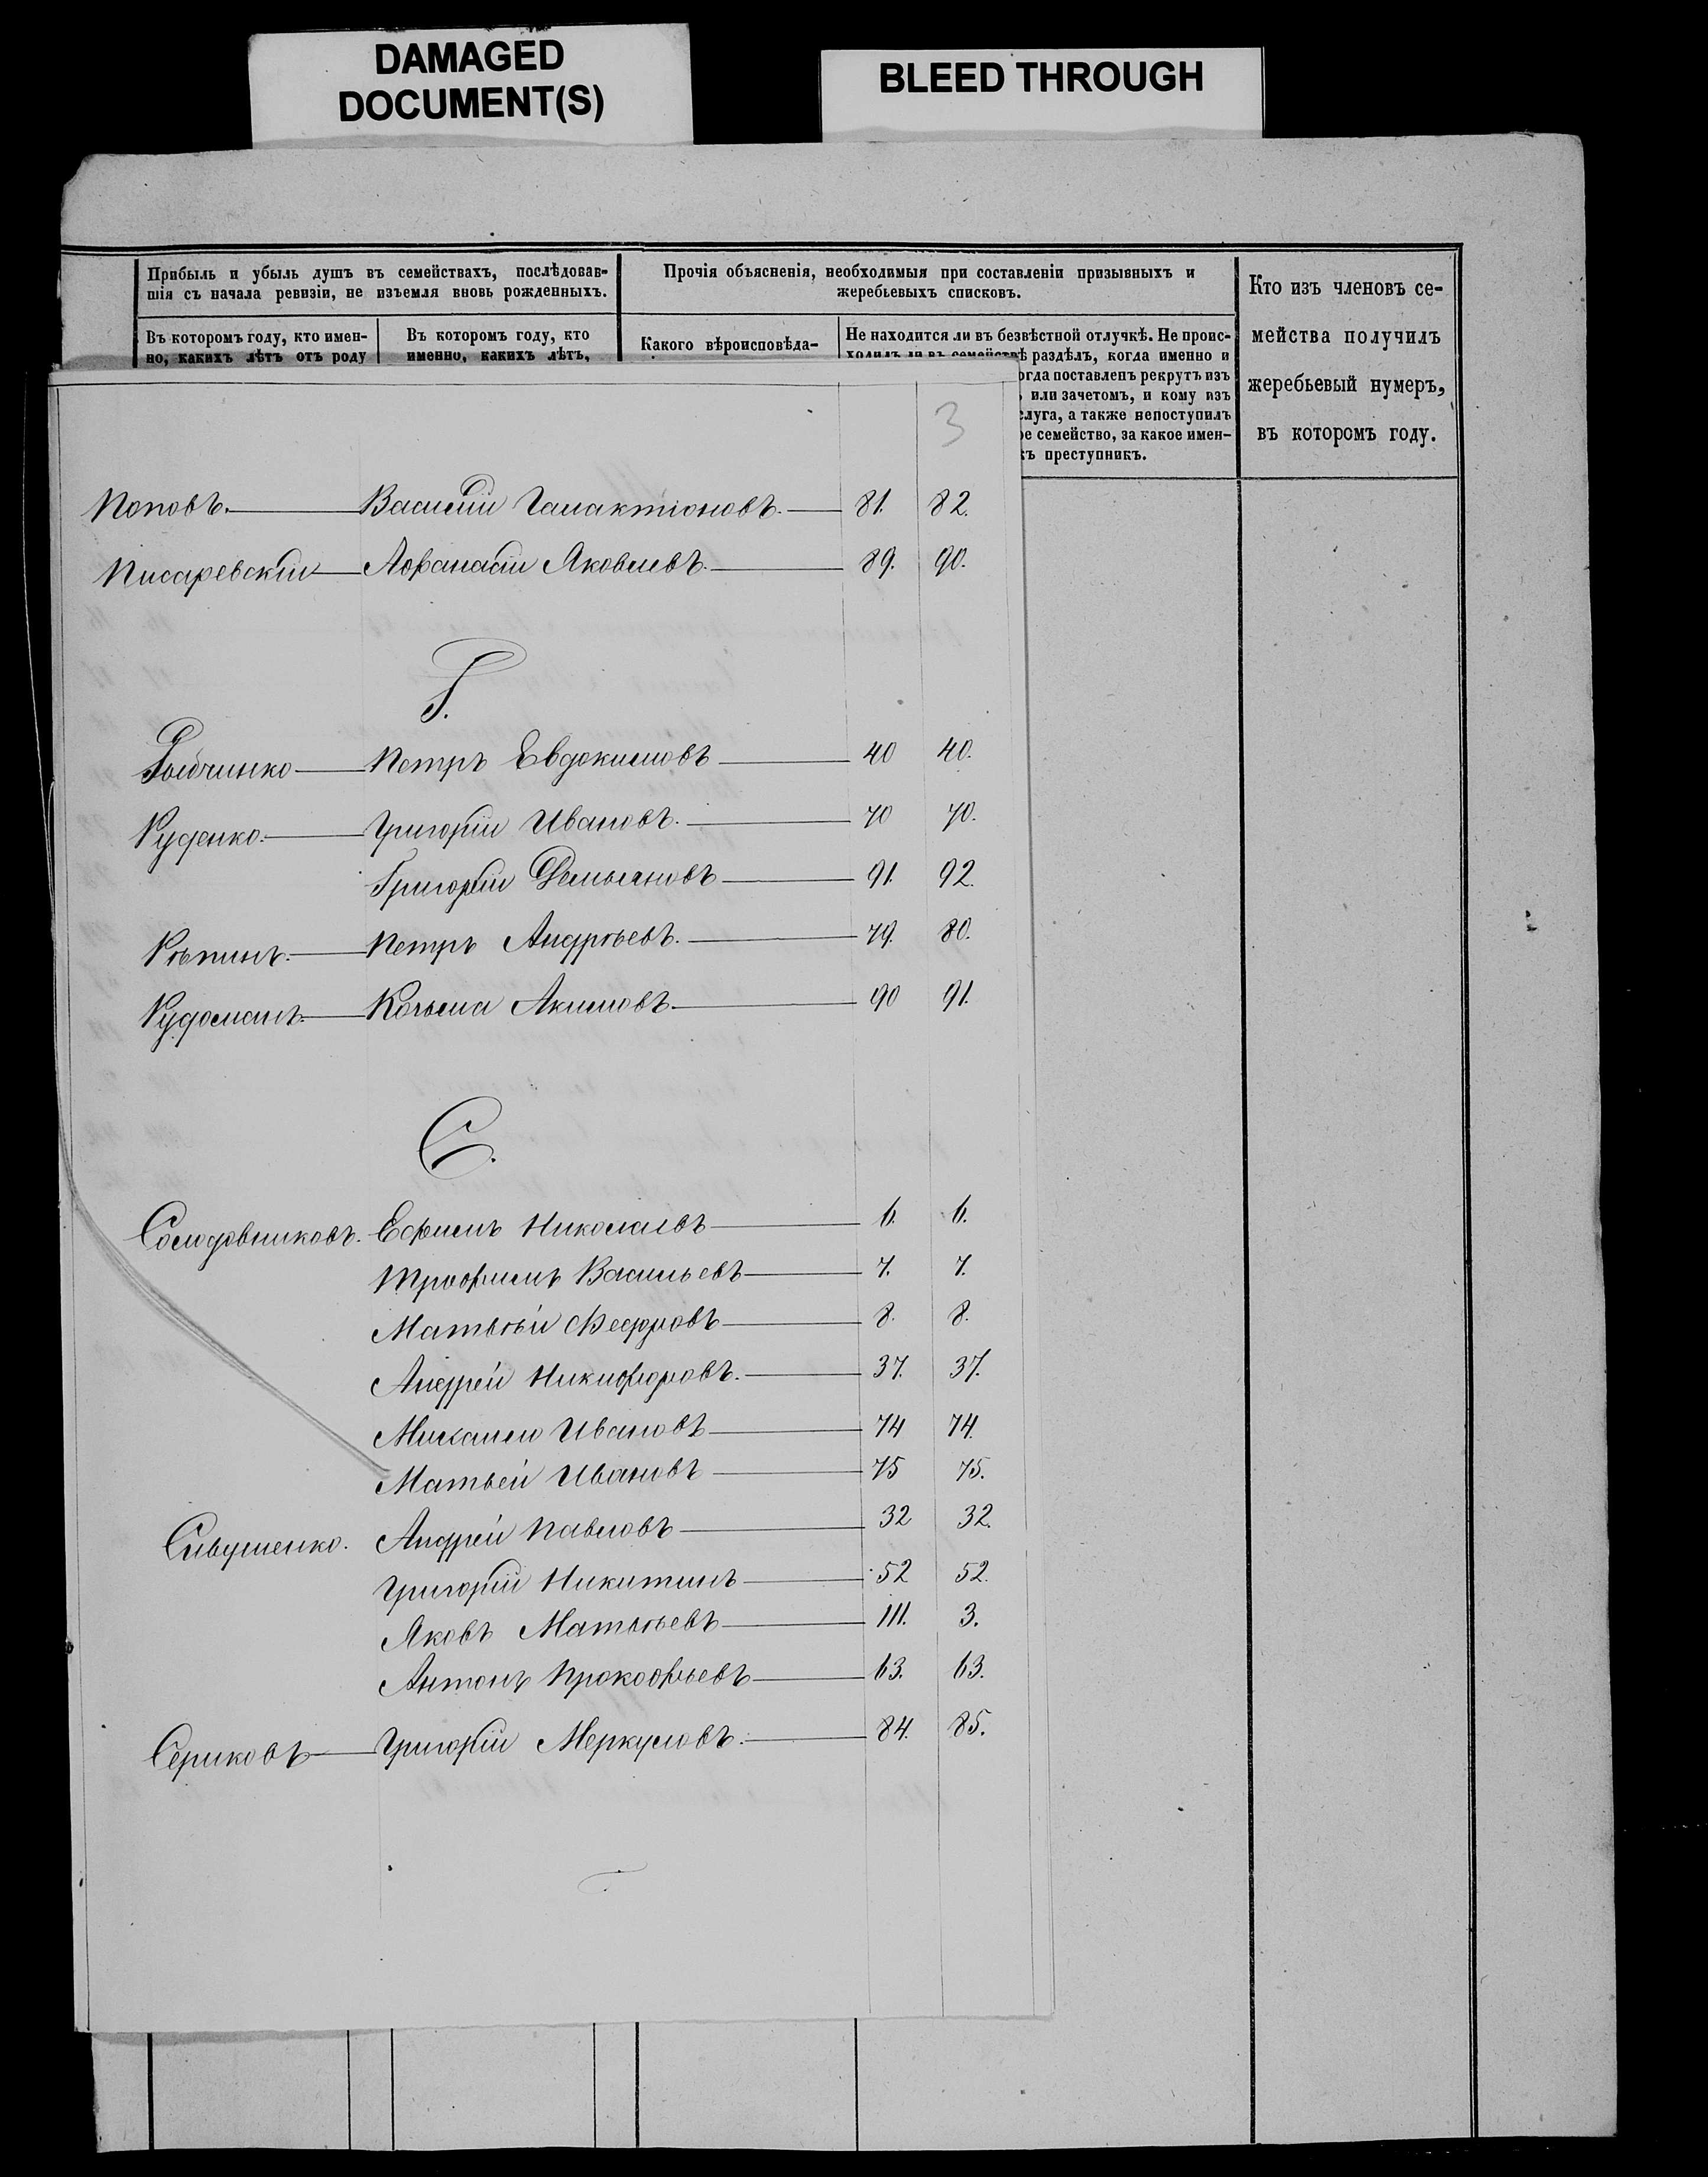 DAMAGED
DOCUMENT(S)
BLEED THROUGH
Прибыль и убыль душъ въ семействахъ, послѣдовав-
шія съ начала ревизіи, не изъемля вновь рожденныхъ.
Прочія объясненія, необходимыя при составленіи призывныхъ и
жеребьевыхъ списковъ.
Кто изъ членовъ се-
мейства получилъ
жеребьевый нумеръ,
въ которомъ году.
Въ которомъ году, кто имен-
но, какихъ лѣтъ отъ роду
Въ которомъ году, кто
именно, какихъ лѣтъ,
Какого вѣроисповѣда-
Не находится ли въ безвѣстной отлучкѣ. Не проис-
ходилъ ли въ семействѣ раздѣлъ, когда именно и
огда поставленъ рекрутъ изъ
или зачетомъ, и кому изъ
слуга, а также непоступилъ
ое семейство, за какое имен-
къ преступникъ.
3
Поповъ. Василій Галактіоновъ. 81. 82.
Писаревскій Афанасій Яковлевъ. 89. 90.
Р.
Петръ Евдокимовъ 40 40.
Руденко. Григорій Ивановъ. 70 70.
Григорій Демьяновъ 91. 92.
Рѣпинъ. Петръ Андрѣевъ. 79. 80.
Рудоманъ. Козьма Акимовъ. 90 91.
С.
Солодовниковъ. Ефимъ Николаевъ 6. 6.
Трофимъ Васильевъ 7. 7.
Матвѣй Федоровъ 8. 8.
Андрей Никифоровъ. 37. 37.
Михаило Ивановъ 74 74.
Матвей Ивановъ 75 75.
Сивушенко. Андрей Павловъ 32 32.
Григорій Никитинъ 52 52.
Яковъ Матвѣевъ 111. 3.
Антонъ Прокофьевъ 63. 63.
Сериковъ Григорій Меркуловъ. 84. 85.